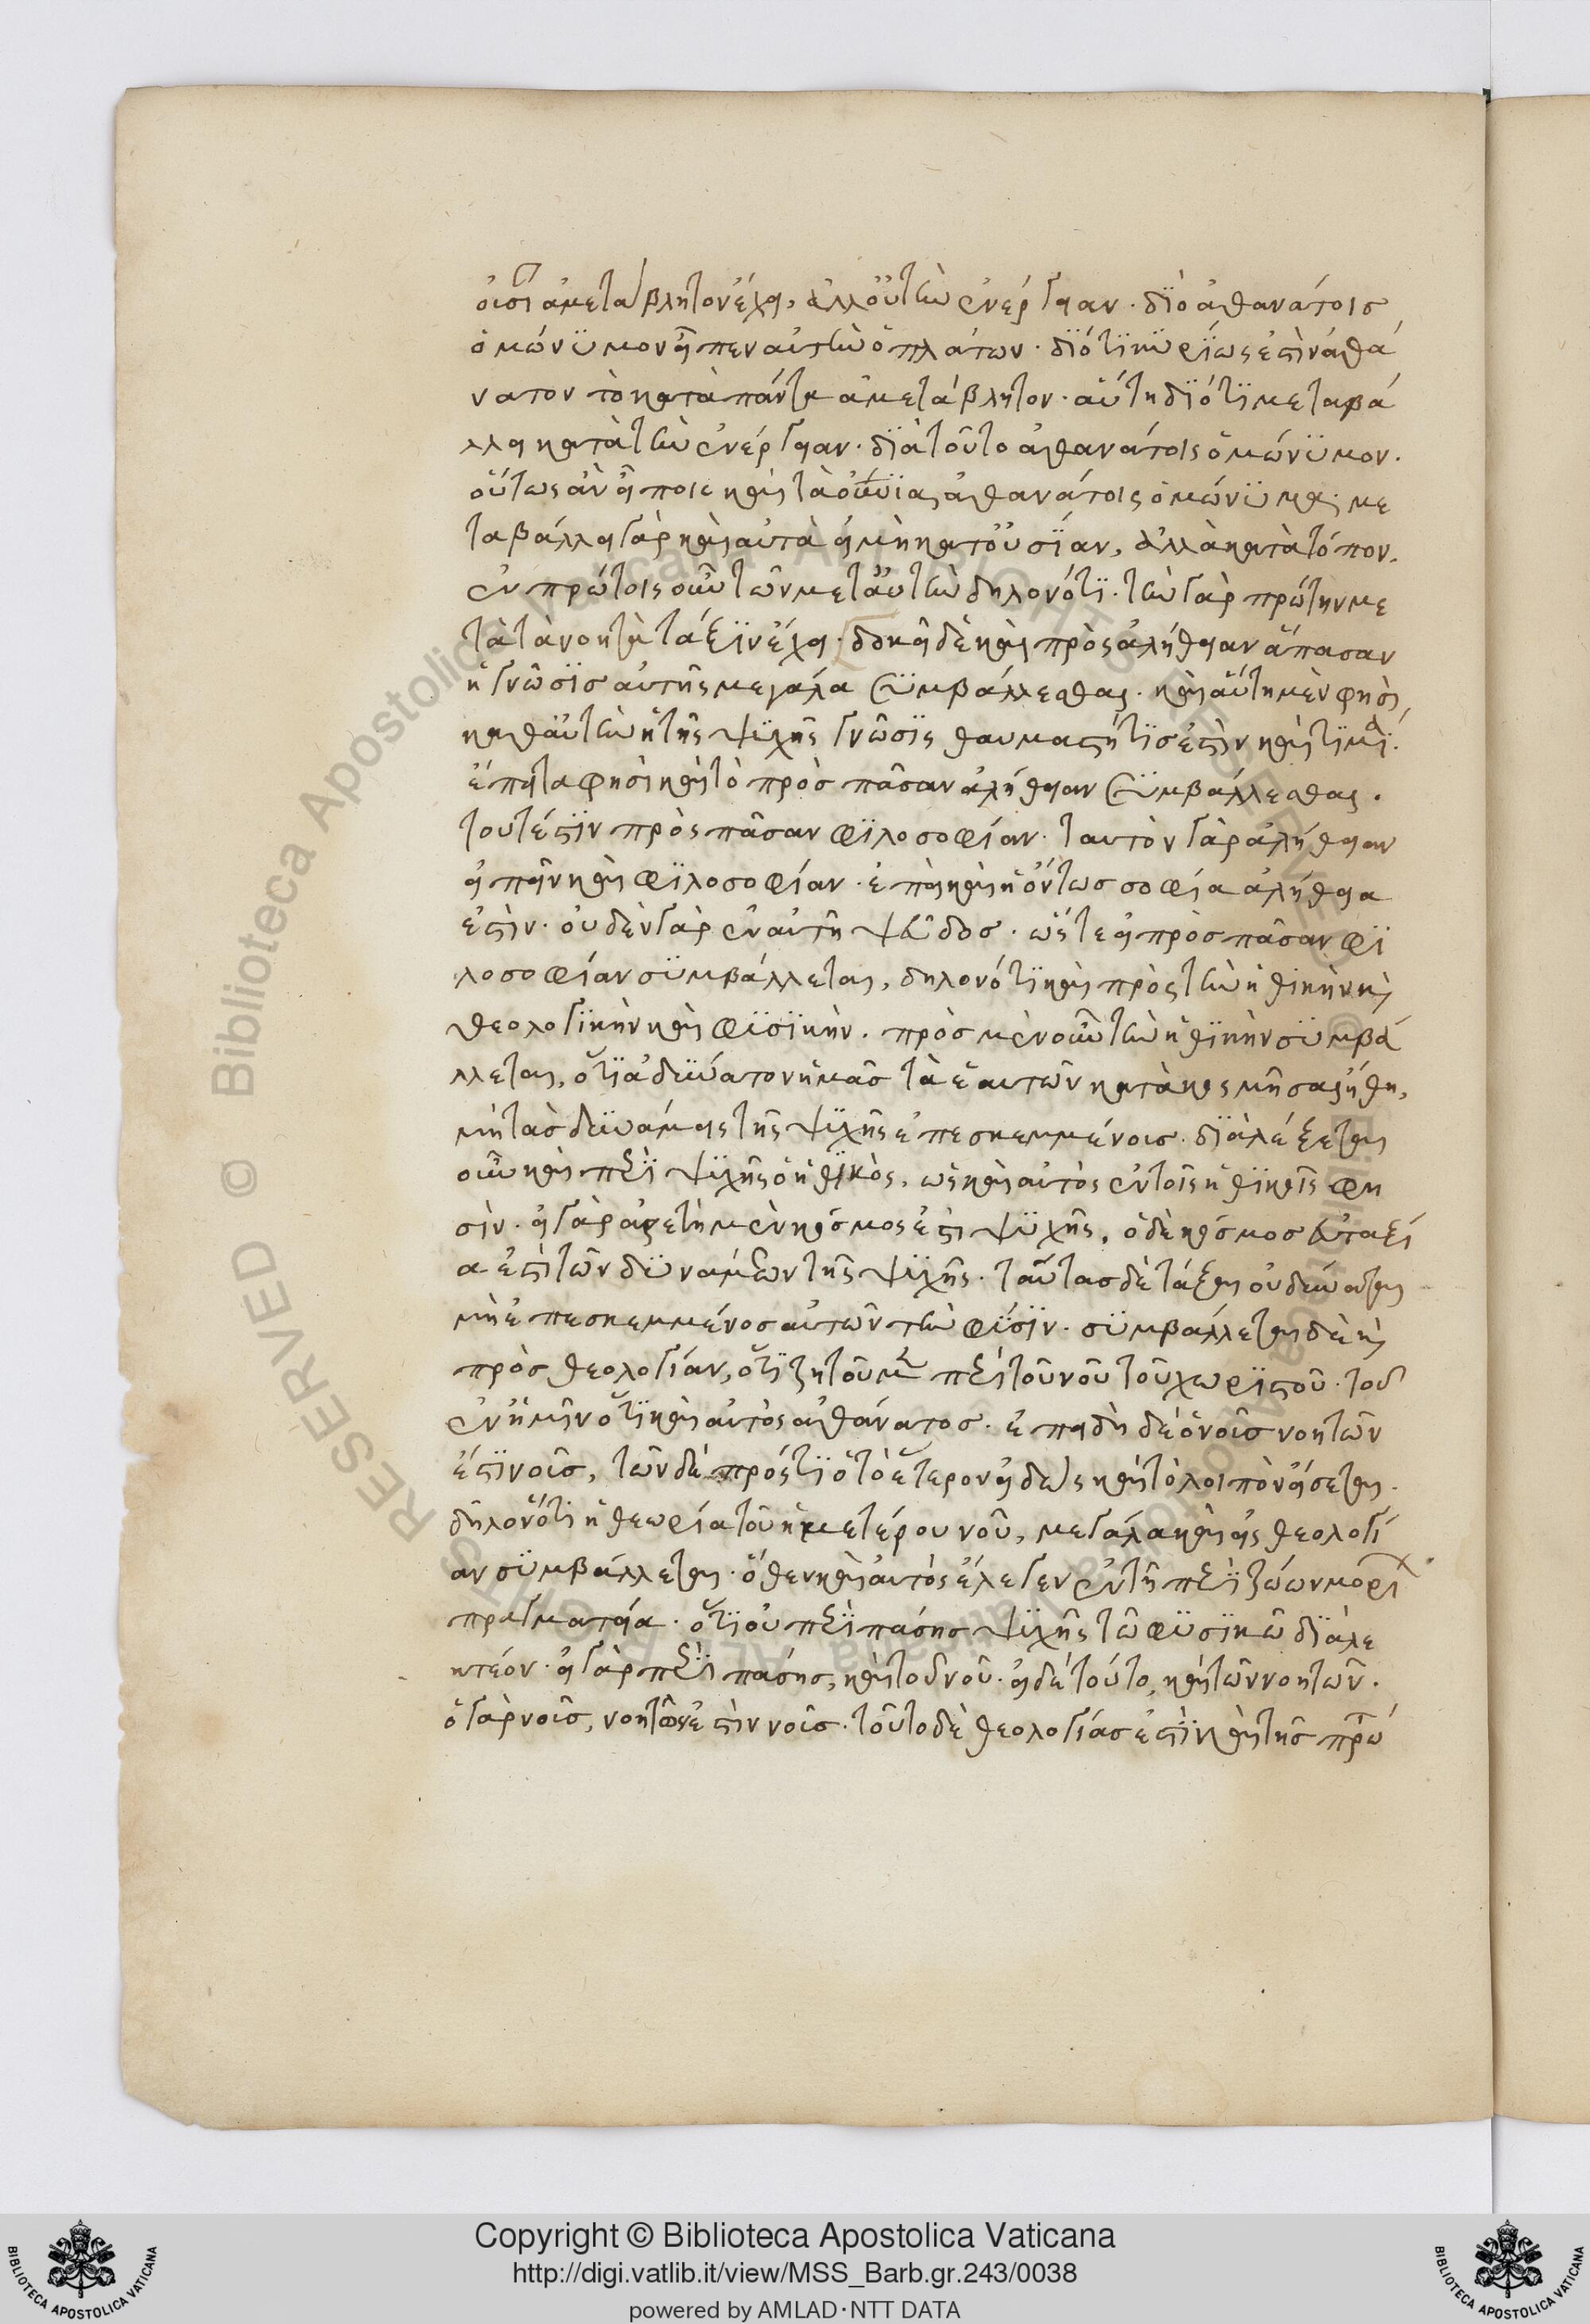 οὐσίαν ἀμετάβλητον ἔχει, ἀλλ' οὐ τὴν ἐνέργειαν· διὸ ἀθανάτοις
ὁμώνυμον εἶπεν αὐτὴν ὁ πλάτων· διότι κυρίως ἐστὶν ἀθά
νατον τὸ κατὰ πάντα ἀμετάβλητον· αὕτη διότι μεταβά
λλει κατὰ τὴν ἐνέργειαν· διὰ τοῦτο ἀθανάτοις ὁμώνυμον·
οὕτως ἂν εἴποις καὶ τὰ οὐράνια ἀθανάτοις ὁμώνυμα· με
ταβάλλει γὰρ καὶ αὐτὰ εἰ μὴ κατ' οὐσίαν, ἀλλὰ κατὰ τόπον.
ἐν πρώτοις οὖν τῶν μετ' αὐτὴν δηλονότι· τὴν γὰρ πρώτην με
τὰ τὰ νοητὰ τάξιν ἔχει· δοκεῖ δὲ καὶ πρὸς ἀλήθειαν ἅπασαν
ἡ γνῶσις αὐτῆς μεγάλα συμβάλλεσθαι· καὶ αὕτη μὲν φησὶ,
καθ' αὑτὴν ἡ τῆς ψυχῆς γνῶσις θαυμαστή τις ἐστὶν καὶ τιμία·
ἔπειτα φησὶ καὶ τὸ πρὸς πᾶσαν ἀλήθειαν συμβάλλεσθαι·
τουτέστιν πρὸς πᾶσαν φιλοσοφίαν· ταυτὸν γὰρ ἀλήθειαν
εἰπεῖν καὶ φιλοσοφίαν· ἐπεὶ καὶ ἡ ὄντως σοφία ἀλήθεια
ἐστὶν· οὐδὲν γὰρ ἐν αὐτῇ ψεῦδος· ὥστε εἰ πρὸς πᾶσαν φι
λοσοφίαν συμβάλλεται, δηλονότι καὶ πρὸς τὴν ἠθικὴν κὶ
θεολογικὴν καὶ φυσικὴν· πρὸς μὲν οὖν τὴν ἠθικὴν συμβά
λλεται, ὅτι ἀδύνατον ἡμᾶς τὰ ἑαυτῶν κατὰ κοσμῆσαι ἤθη,
μὴ τὰς δυνάμεις τῆς ψυχῆς ἐπεσκεμμένοις· διαλέξεται
οὖν καὶ περὶ ψυχῆς ὁ ἠθικὸς, ὡς καὶ αὐτὸς ἐν τοῖς ἠθικοῖς φη
σὶν· εἰ γὰρ ἀρετὴ μὲν κόσμος ἐστὶ ψυχῆς, ὁ δὲ κόσμος εὐταξί
α ἐστὶ τῶν δυνάμεων τῆς ψυχῆς· ταύτας δὲ τάξαι οὐ δύναται
μὴ ἐπεσκεμμένος αὐτῶν τὴν φύσιν· συμβάλλεται δὲ κὶ
πρὸς θεολογίαν, ὅτι ζητοῦμεν περὶ τοῦ νοῦ τοῦ χωριστοῦ· τοῦ
ἐν ἡμῖν ὅτι καὶ αὐτὸς ἀθάνατος· ἐπειδὴ δὲ ὁ νοῦς νοητῶν
ἐστι νοῦς, τῶν δὲ πρός τι ὁ τὸ ἕτερον εἰδὼς καὶ τὸ λοιπὸν εἴσεται·
δηλονότι ἡ θεωρία τοῦ ἡμετέρου νοῦ, μεγάλα καὶ εἰς θεολογί
αν συμβάλλεται· ὅθεν καὶ αὐτὸς ἔλεγεν ἐν τῇ περὶ ζώων μορί
πραγματεία· ὅτι οὐ περὶ πάσης ψυχῆς τῶ φυσικῶ διαλε
κτέον· εἰ γὰρ περὶ πάσης, καὶ τοῦ νοῦ· εἰ δὲ τούτο, καὶ τῶν νοητῶν.
ὁ γὰρ νοῦς, νοητῶν ἐστὶν νοῦς· τοῦτο δὲ θεολογίας ἐστὶν καὶ τῆς πρώτ
Copyright © Biblioteca Apostolica Vaticana
http://digi.vatlib.it/view/MSS_Barb.gr.243/0038
powered by AMLAD·NTT DATA